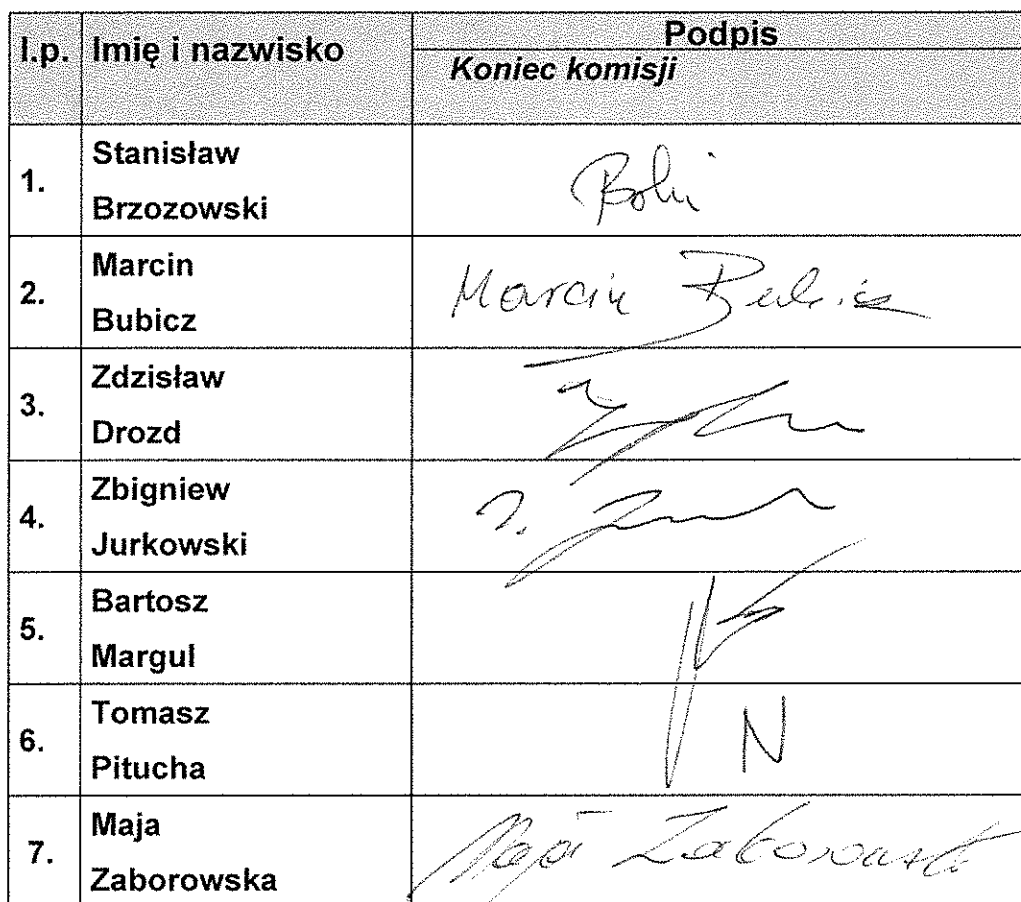 l.p. Imię i nazwisko Podpis
Koniec komisji
1. Stanisław
Brzozowski
2. Marcin
Bubicz
Marcin Bubicz
3. Zdzisław
Drozd
4. Zbigniew
Jurkowski
5. Bartosz
Margul
6. Tomasz
Pitucha
N
7. Maja
Zaborowska
Maja Zaborowska